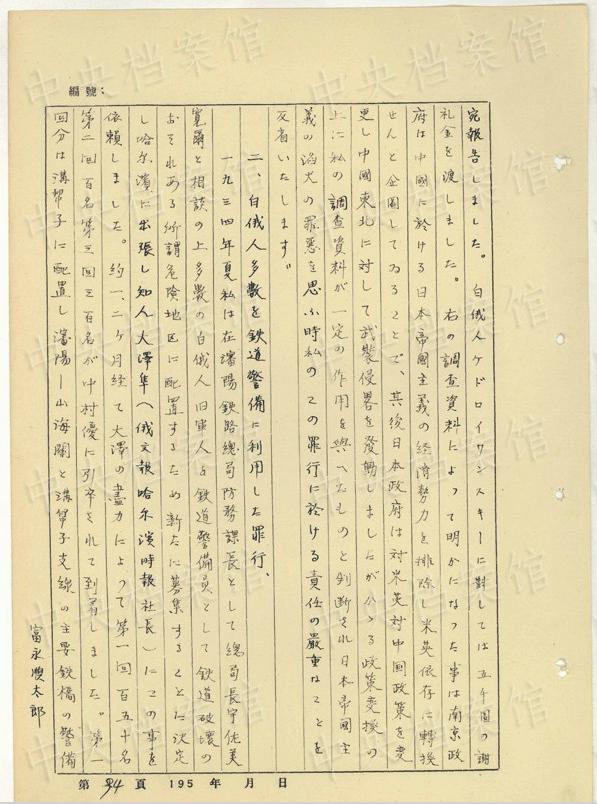 編號：
宛報告しました。白俄人ケドロイサンスキーに對しては五千圓の謝
礼金を渡しました。右の調査資料によって明かになった事は南京政
府は中國に於ける日本帝國主義の経済勢力を排除し米英依存に轉換
せんと企圖してゐることで、其後日本政府は対米英対中國政策を変
更し中國東北に対して武裝侵畧を發動しましたがかゝる政策変換の
上に私の調査資料が一定の作用を與へたものと判断され日本帝國主
義の滔天の罪悪を思ふ時私のこの罪行に於ける責任の嚴重なことを
反省いたします。
二、白俄人多数を鉄道警備に利用した罪行、
一九三四年夏私は在瀋陽鉄路總局防務課長として總局長宇佐美
寛爾と相談の上多数の白俄人旧軍人を鉄道警備員として鉄道破壊の
おそれある所謂危險地区に配置するため新たに募集することに決定
し哈尔濱に出張し知人大澤隼（俄文報哈尔濱時報社長）にこの事を
依賴しました。約一、二ケ月経て大澤の盡力によって第一回百五十名
第二回百名第三回三百名が中村優に引卒されて到着しました。第一
回分は溝幇子に配置し瀋陽—山海関と溝幇子支線の主要鉄橋の警備
富永順太郎
第 94 頁 195 年 月 日
中央档案馆